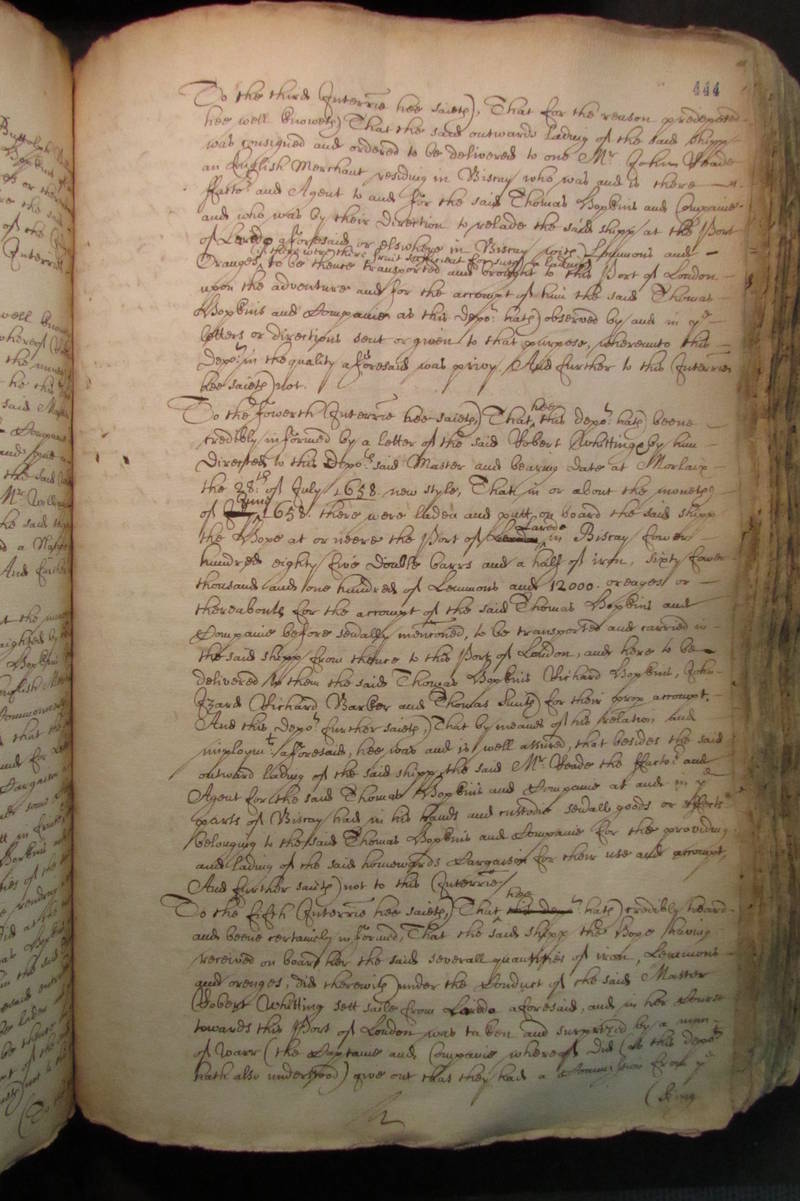 444
To the third Interrie hee saieth, That for the reason predeposed
hee well knoweth That the said outwards lading of the said shipp
was consigned and ordered to be delivered to one Mr John Veade
an English Merchant residing in Biscay who was and is there
ffactor and Agent to and for the said Thomas Hopkins and Companie
and who was by their direction to relade the said shipp at the Port
of Laredo aforesaid or elsewhere in Biscay with Lemmons and
if there were there fruit sufficient for such a lading
Oranges, to be thence transported and brought to this Port of London
upon the adventure and for the accompt of him the said Thomas
Hopkins and Companie as this depot hath observed by and in ye
letters or directions sent or given to that purpose, whereunto this
depot in the quality aforesaid was privy, And further to this Interrie
hee saieth not.
To the fowerth Interrie hee saieth, That hee this depot hath beene
credibly informed by a letter of the said Robert Whitting by him
directed to this depots said Master and bearing date at Morlaix
the 28th of July 1658 new style, That in or about the moneth
of June 1658. there were laden and putt on board the said shipp
the Hope at or neere the Port of Laredo in Biscay fower
hundred eighty five double barrs and a half of iron, sixty fower
thousand and one hundred of Lemmons and 12000. oreages or
thereabouts for the accompt of the said Thomas Hopkins and
Companie before sevally mentioned, to be transported and carried in
the said shipp from thence to this Port of London, and here to be
delivered to them the said Thomas Hopkins Richard Hopkins, John
Izard Richard Barker and Thomas Smith for their accompt.
And this depot further saieth, That by meanes of his relation and
imploymt aforesaid, hee was and is well assured, that besides the said
outward lading of the said shipp, the said Mr Veade the ffactor and
Agent for the said Thomas Hopkins and Companie at and in ye
parts of Biscay had in his hands and custodie sevall goods or effects
belonging to the said Thomas Hopkins and Companie for the providing
and lading of the said homewards Cargaison for their use and accompt,
And further saieth not to this Interrie
To the fifth Interrie hee saieth, That hee this depot hath credibly heard
and beene certainly informed, That the said shipp the Hope having
received on board her the said severall quantities of iron, Lemmons
and orenges, did therewith under the Conduct of the said Master
Robert Whitting sett saile from Laredo aforesaid, and in her Course
towards this Port of London was taken and surprized by a man
of Warr (the Captaine and Companie whereof did (as this depot
hath also understood) give out that they had a Commission from ye
(King